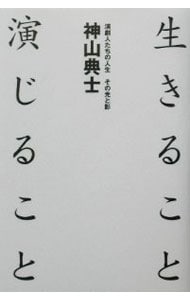 生きること
演劇人たちの人生 その光と影
神山典士
演じること